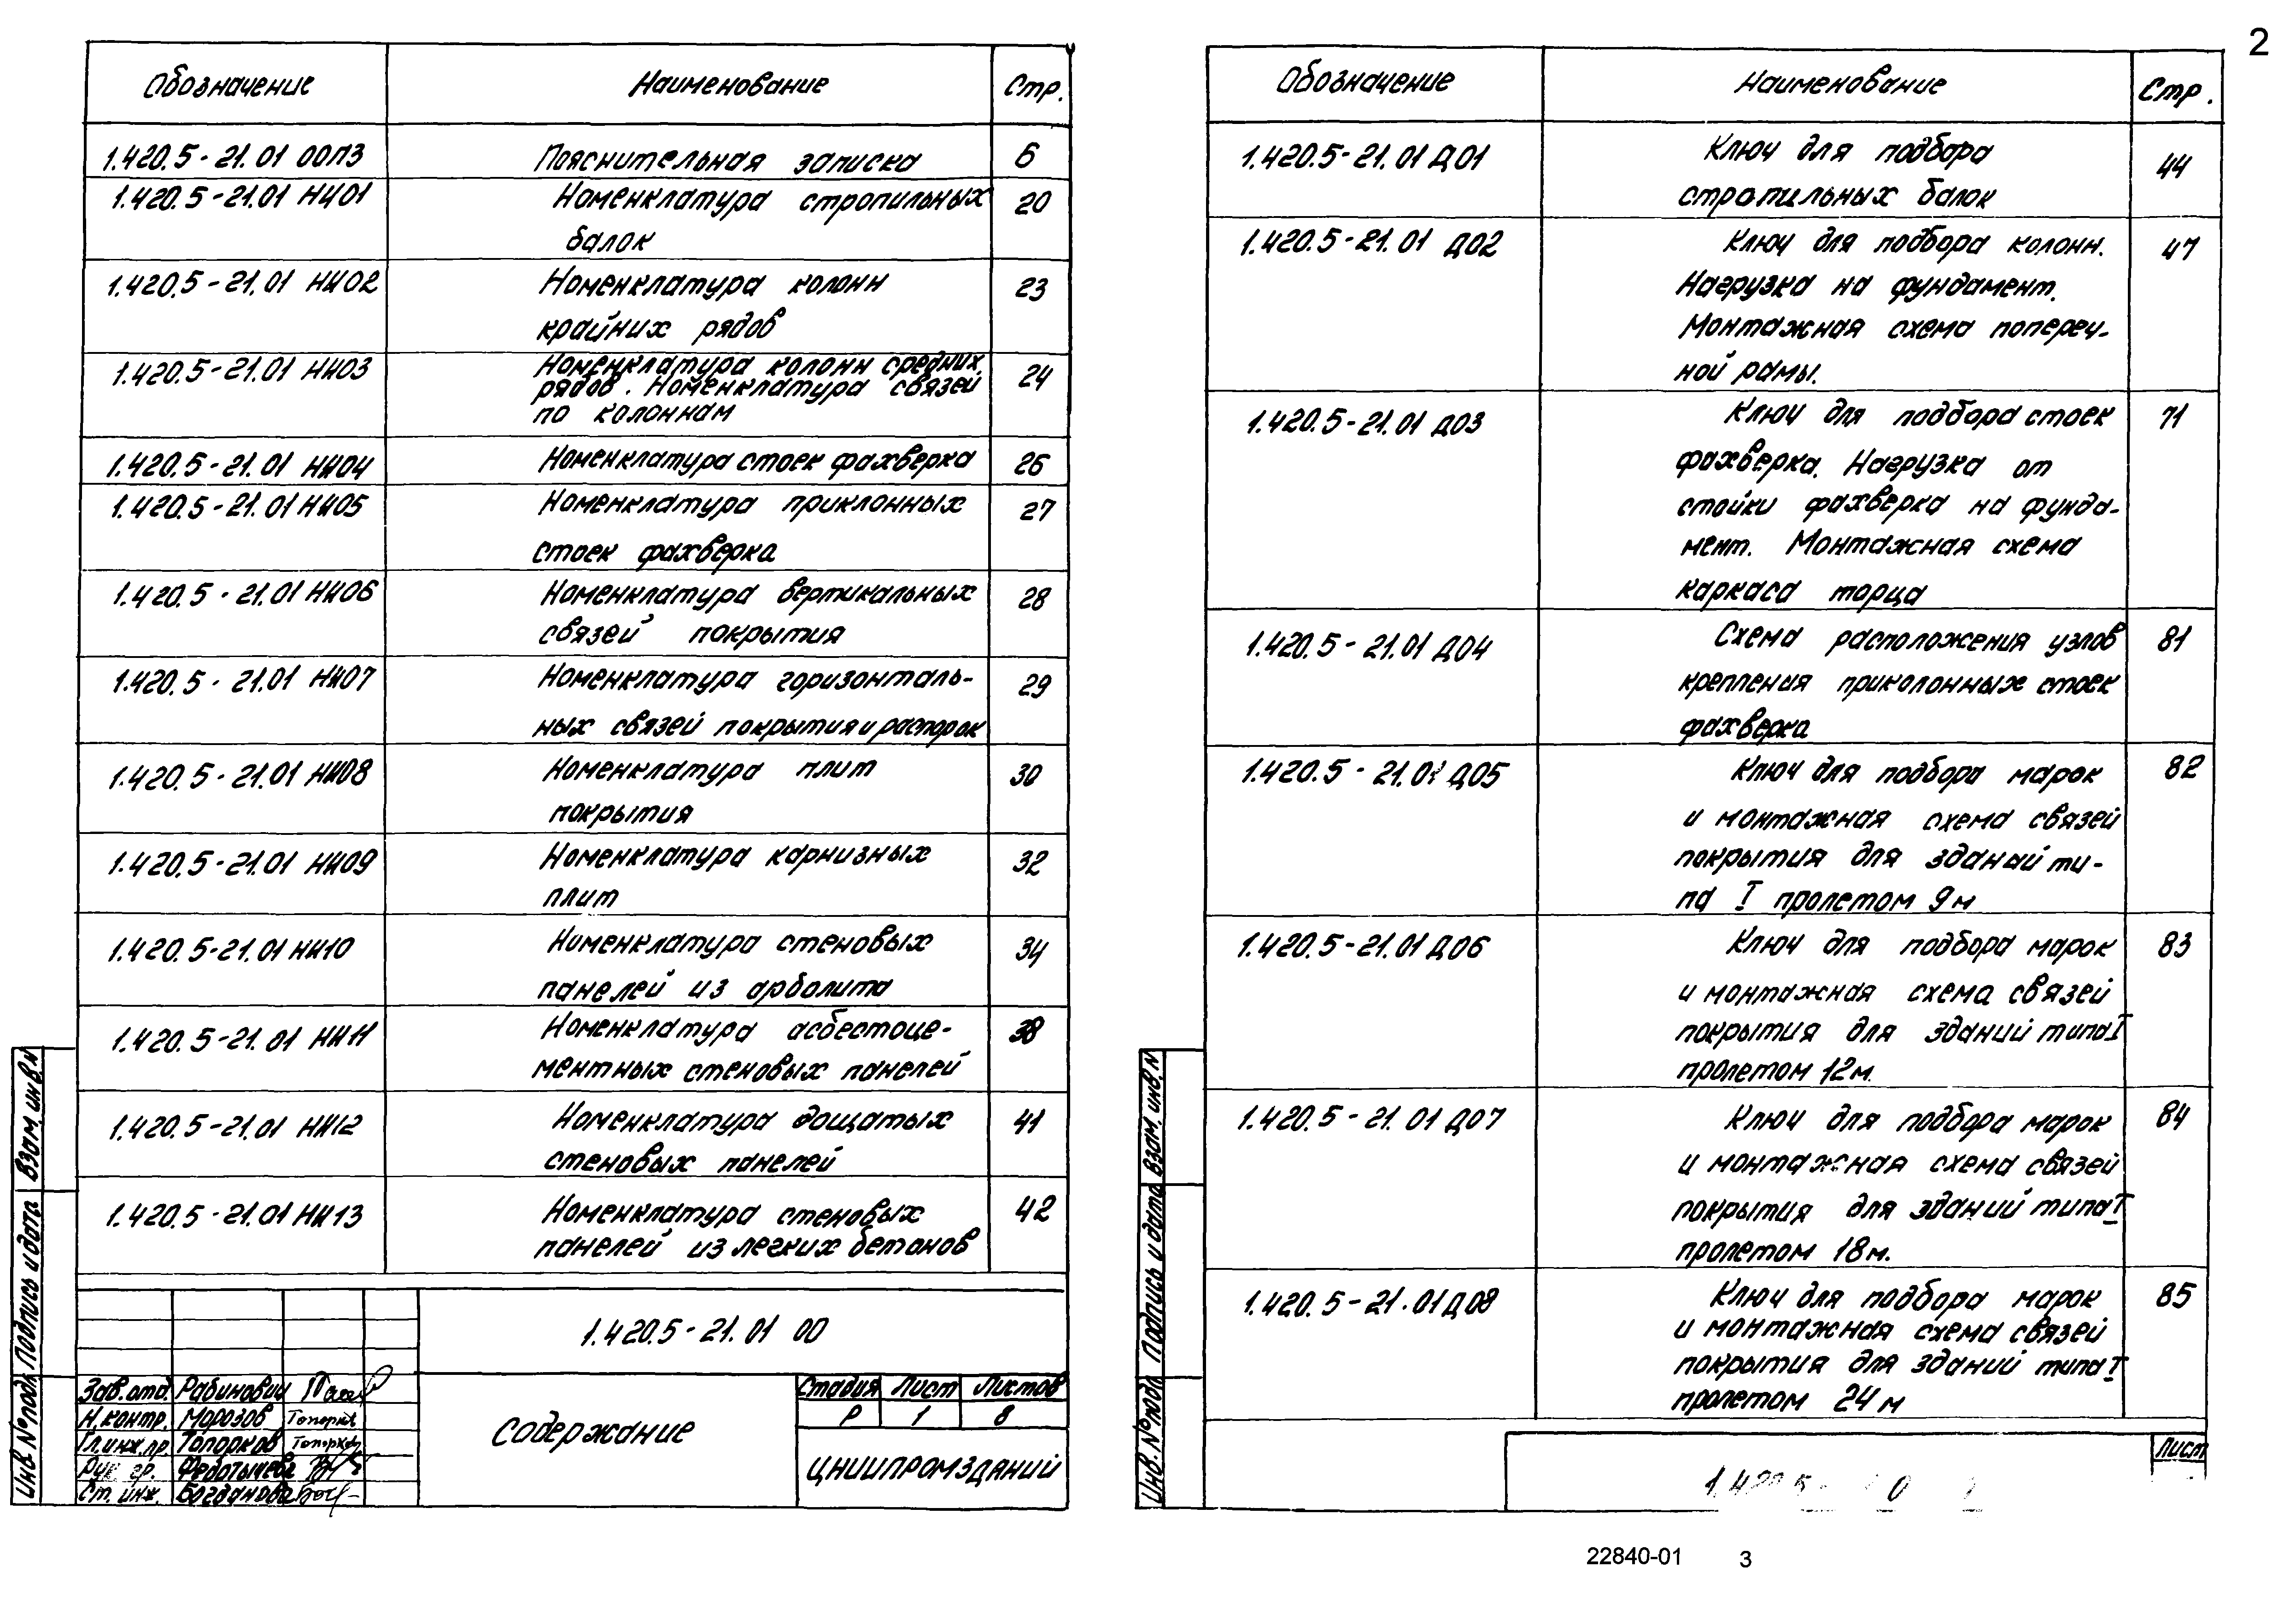 2
Обозначение Наименование Стр.
1.420.5-21.01 00ПЗ Пояснительная записка 6
1.420.5-21.01 НИ01 Номенклатура стропильных 20
балок
1.420.5-21.01 НИ02 Номенклатура колонн 23
крайних рядов
1.420.5-21.01 НИ03 Номенклатура колонн средних 24
рядов. Номенклатура связей
по колоннам
1.420.5-21.01 НИ04 Номенклатура стоек фахверка 26
1.420.5-21.01 НИ05 Номенклатура приклонных 27
стоек фахверка
1.420.5-21.01 НИ06 Номенклатура вертикальных 28
связей покрытия
1.420.5-21.01 НИ07 Номенклатура горизонталь- 29
ных связей покрытия и распорок
1.420.5-21.01 НИ08 Номенклатура плит 30
покрытия
1.420.5-21.01 НИ09 Номенклатура карнизных 32
плит
1.420.5-21.01 НИ10 Номенклатура стеновых 34
панелей из арболита
1.420.5-21.01 НИ11 Номенклатура асбестоце- 38
ментных стеновых панелей
1.420.5-21.01 НИ12 Номенклатура дощатых 41
стеновых панелей
1.420.5-21.01 НИ13 Номенклатура стеновых 42
панелей из легких бетонов
Взам. инв. N
Подпись и дата
Инв. № подл
1.420.5-21.01 00
Зав. отд. Рабинович
Н. контр. Морозов
Гл. инж. пр. Топорков
Рук. гр. Федотычева
Ст. инж. Богданова
Содержание
Стадия Лист Листов
Р 1 8
ЦНИИПРОМЗДАНИЙ
Обозначение Наименование Стр.
1.420.5-21.01 Д01 Ключ для подбора 44
стропильных балок
1.420.5-21.01 Д02 Ключ для подбора колонн. 47
Нагрузка на фундамент.
Монтажная схема попереч-
ной рамы.
1.420.5-21.01 Д03 Ключ для подбора стоек 71
фахверка. Нагрузка от
стойки фахверка на фунда-
мент. Монтажная схема
каркаса торца
1.420.5-21.01 Д04 Схема расположения узлов 81
крепления приколонных стоек
фахверка
1.420.5-21.01 Д05 Ключ для подбора марок 82
и монтажная схема связей
покрытия для зданий ти-
па I пролетом 9м
1.420.5-21.01 Д06 Ключ для подбора марок 83
и монтажная схема связей
покрытия для зданий типа I
пролетом 12м.
1.420.5-21.01 Д07 Ключ для подбора марок 84
и монтажная схема связей
покрытия для зданий типа I
пролетом 18м.
1.420.5-21.01 Д08 Ключ для подбора марок 85
и монтажная схема связей
покрытия для зданий типа I
пролетом 24м
Взам. инв. N
Подпись и дата
Инв. № подл
Лист
22840-01 3